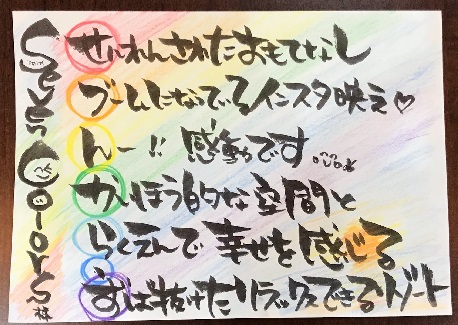 Seven Colors 様
せんれんされたおもてなし
ブームになっているインスタ映え♡
んー!! 感動です
かいほう的な空間と
らくえんで幸せを感じる
ずば抜けたリラックスできるリゾート